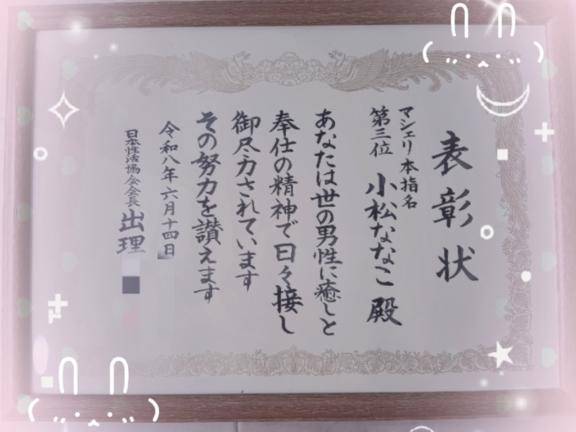 表彰状
マシェリ 本指名
第三位 小松ななこ 殿
あなたは世の男性に癒しと
奉仕の精神で日々接し
御尽力されています
その努力を讃えます
令和八年六月十四日
日本性活協会会長 出理